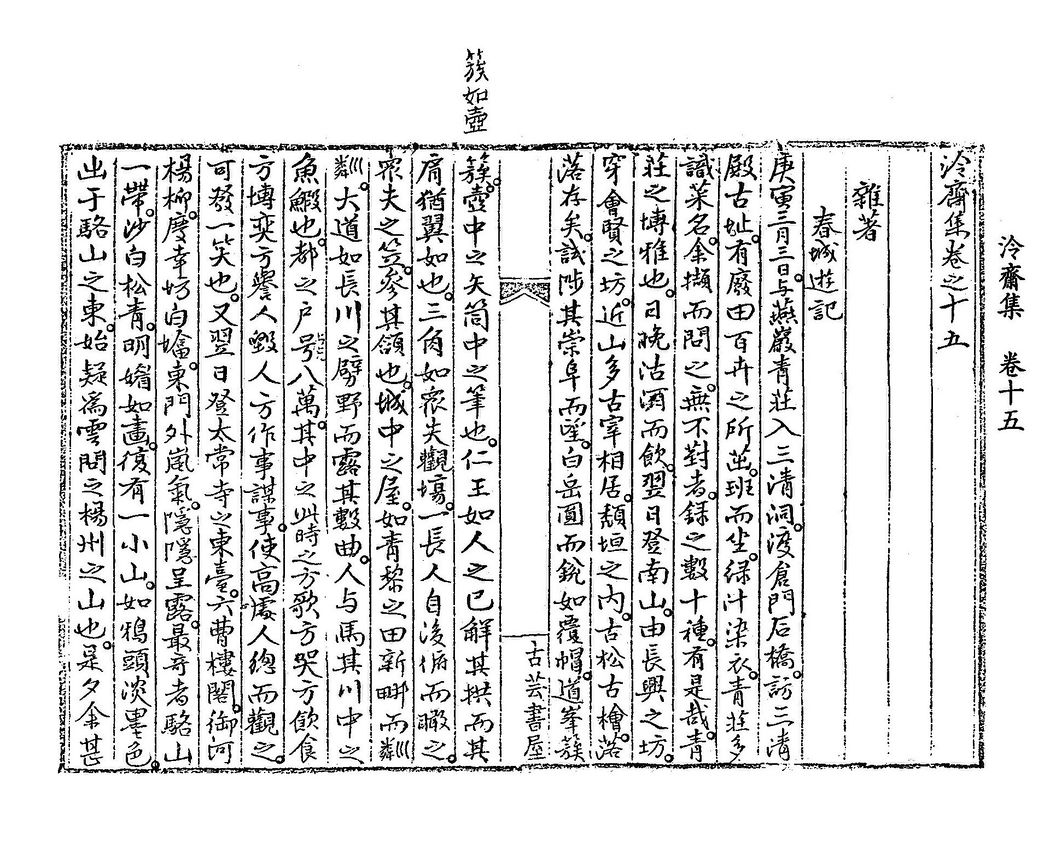 泠齋集 卷十五
泠齋集卷之十五
雜著
春城遊記
庚寅三月三日与燕巖青莊入三清洞。渡倉門石橋。訪三清
殿古址。有廢田百卉之所茁。班而坐。綠汁染衣。青莊多
識菜名。余擷而問之。無不對者。錄之數十種。有是哉。青
莊之博雅也。日晩沽酒而飮。翌日登南山。由長興之坊。
穿會賢之坊。近山多古宰相居。頹垣之內。古松古檜。落
落存矣。試陟其崇阜而望。白岳圓而銳如覆帽。道峯簇
古芸書屋
簇如壺
簇。壺中之矢筒中之筆也。仁王如人之已解其拱而其
肩猶翼如也。三角如衆夫觀場。一長人自後俯而瞰之。
衆夫之笠。參其頷也。城中之屋。如青黎之田新畊而粼
粼。大道如長川之劈野而露其數曲。人与馬其川中之
魚鰕也。都之戶号八萬。其中之此時之方歌方哭方飮食
方博奕方譽人毀人方作事謀事。使高處人總而觀之。
可發一笑也。又翌日登太常寺之東臺。六曹樓閣。御河
楊柳。慶幸坊白塔。東門外嵐氣。隱隱呈露。最奇者駱山
一帶。沙白松青。明媚如畫。復有一小山。如鴉頭淡墨色。
出于駱山之東。始疑爲雲問之楊州之山也。是夕余甚